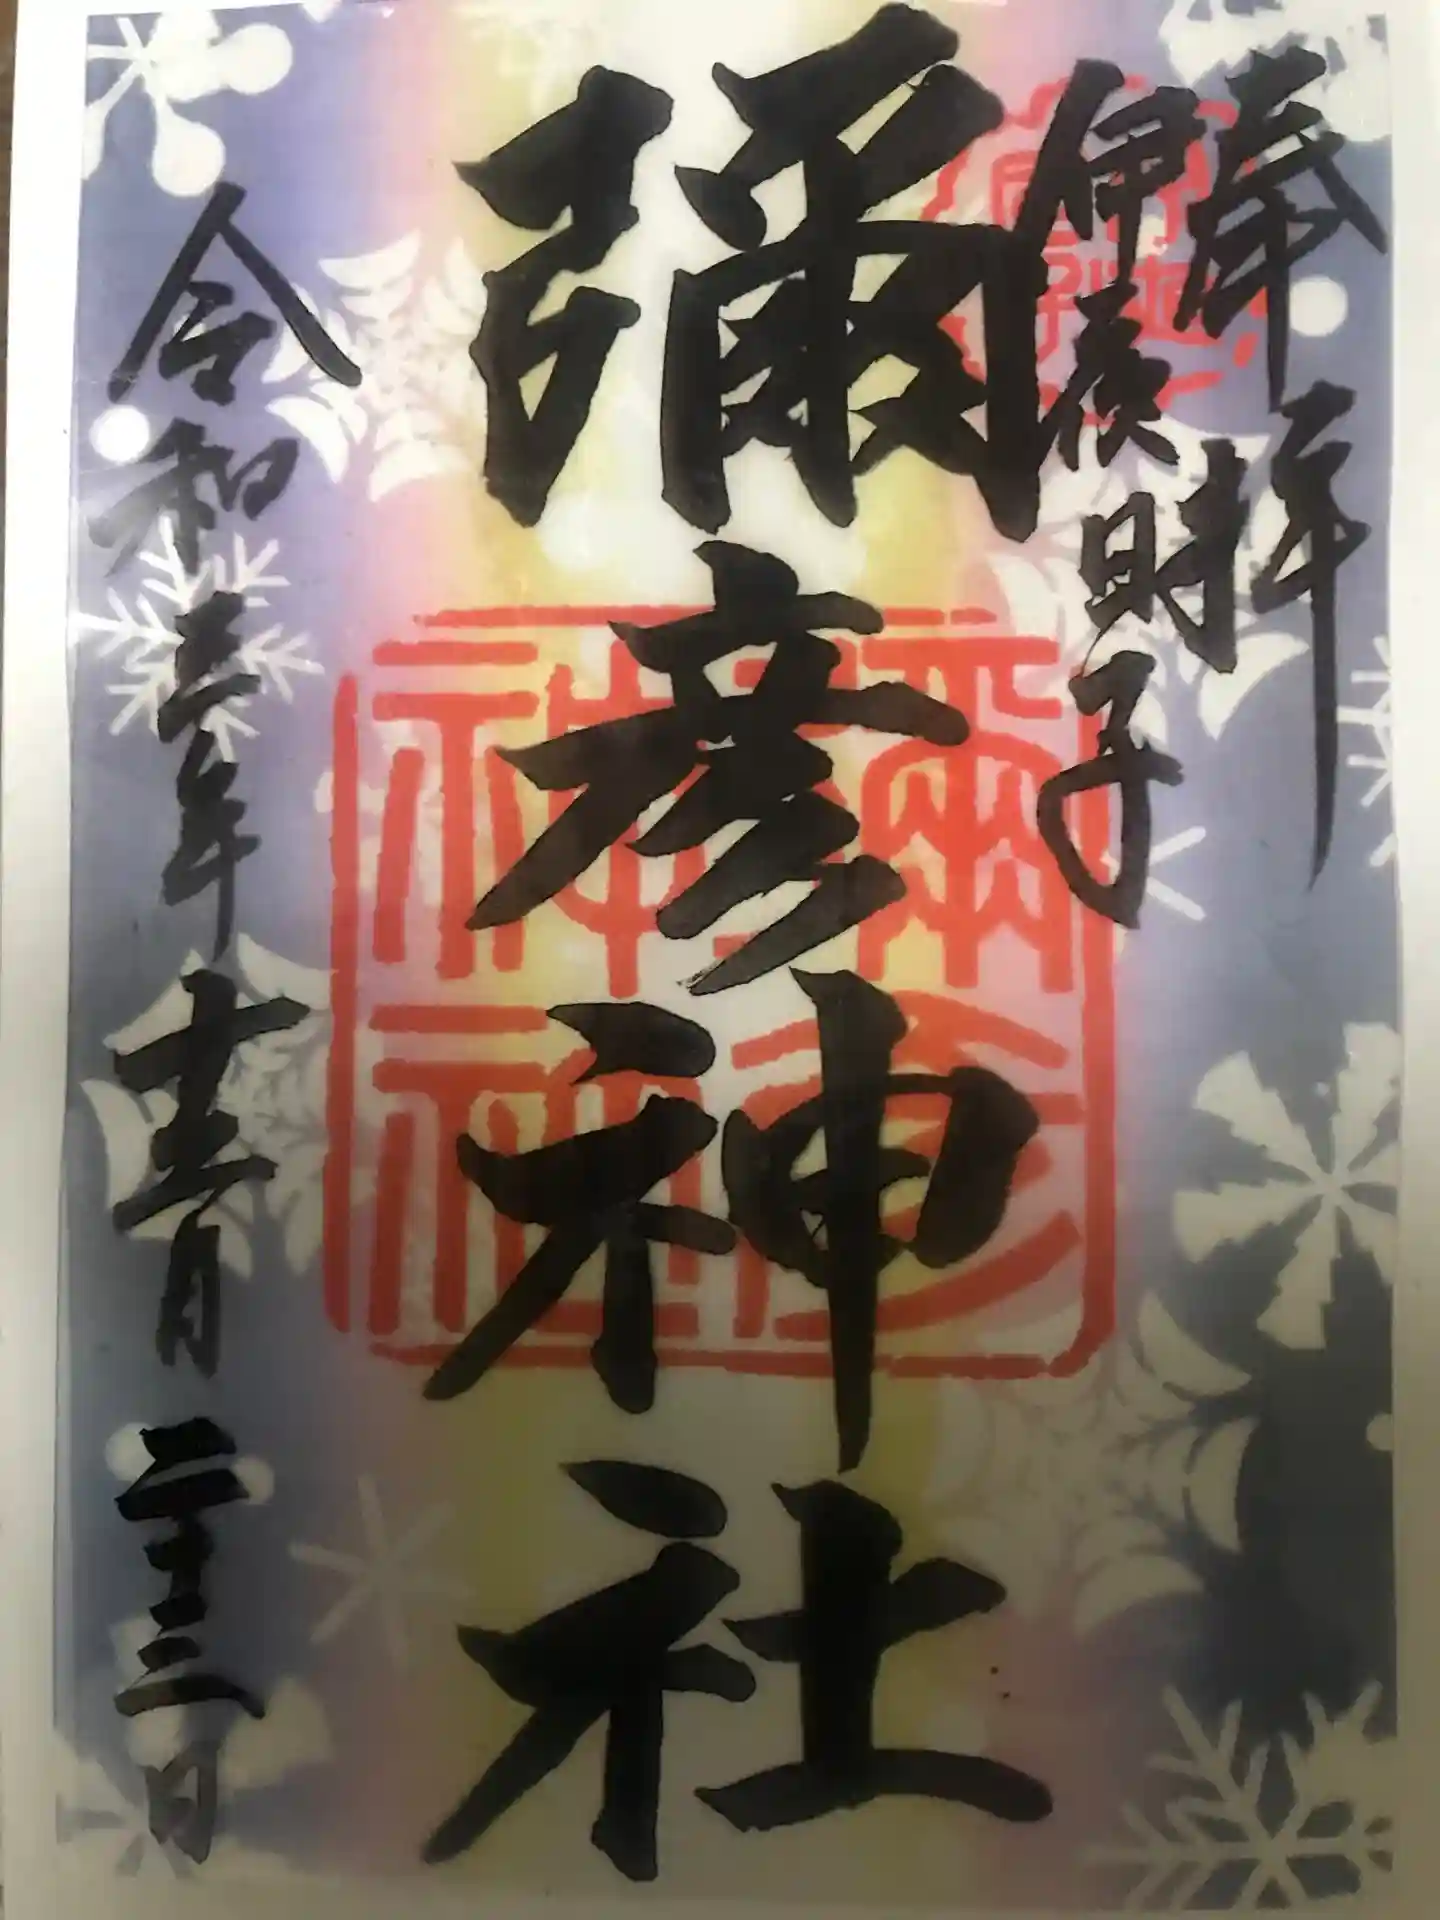 奉拝
伊夜日子
彌彦神社
彌彦神社
令和三年十二月二十三日